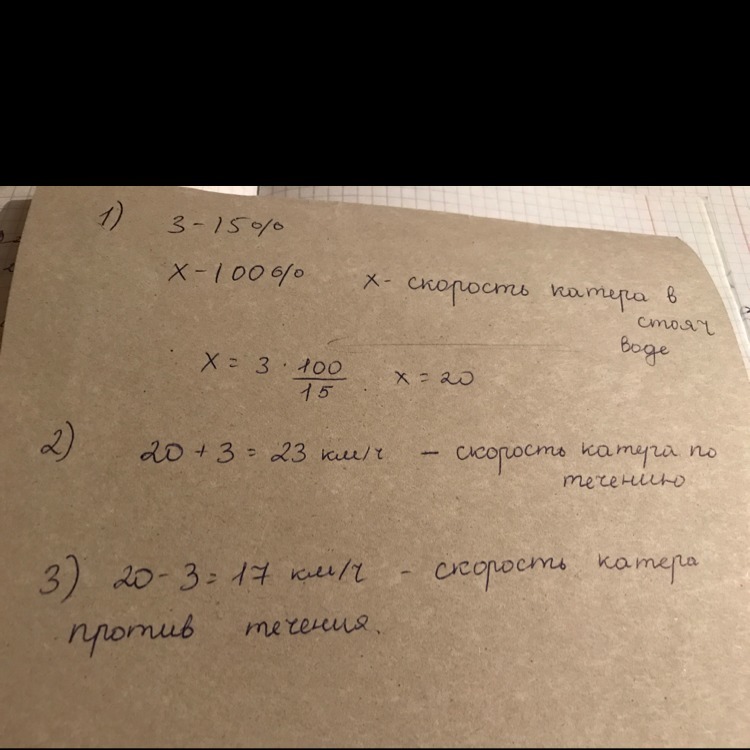 1) 3 - 15%
x - 100% x - скорость катера в
стояч
воде
x = 3 · 100/15 x = 20
2) 20 + 3 = 23 км/ч - скорость катера по
течению
3) 20 - 3 = 17 км/ч - скорость катера
против течения.